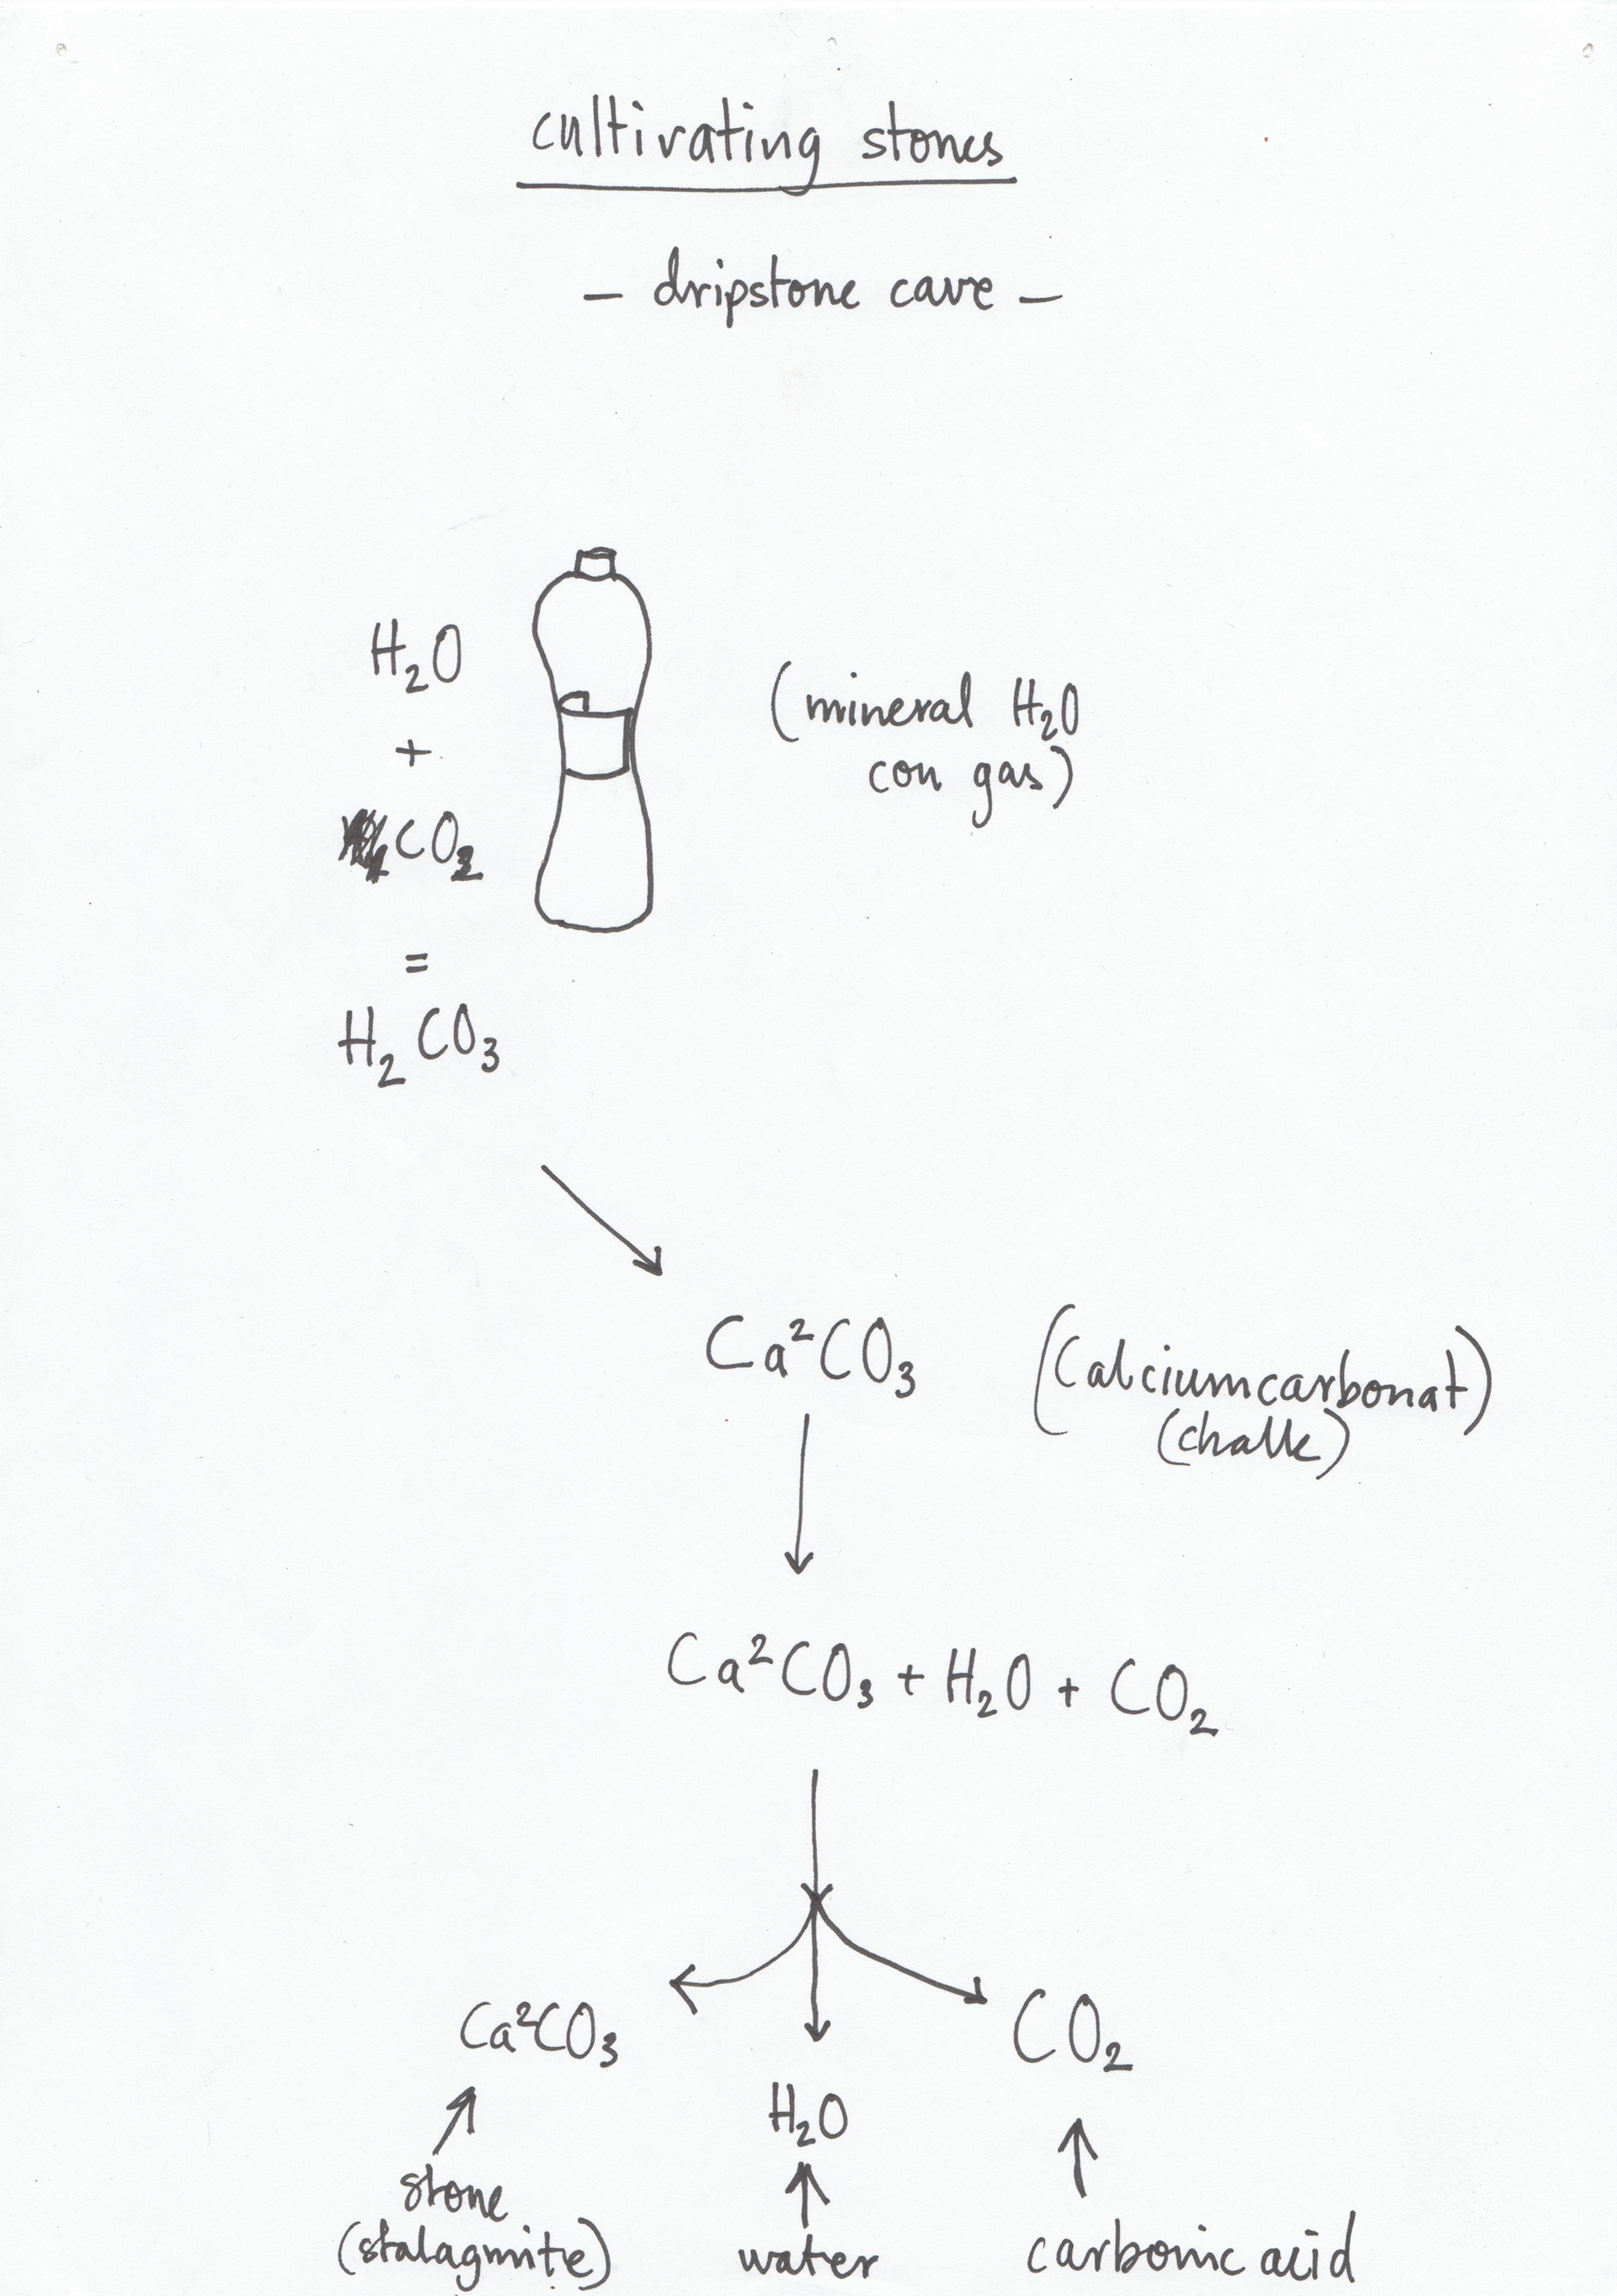 cultivating stones
— dripstone cave —
H₂O
+
CO₂
=
H₂CO₃
(mineral H₂O
con gas)
Ca²CO₃
(Calciumcarbonat)
(chalk)
Ca²CO₃ + H₂O + CO₂
Ca²CO₃
H₂O
CO₂
stone
(stalagmite)
water
carbonic acid